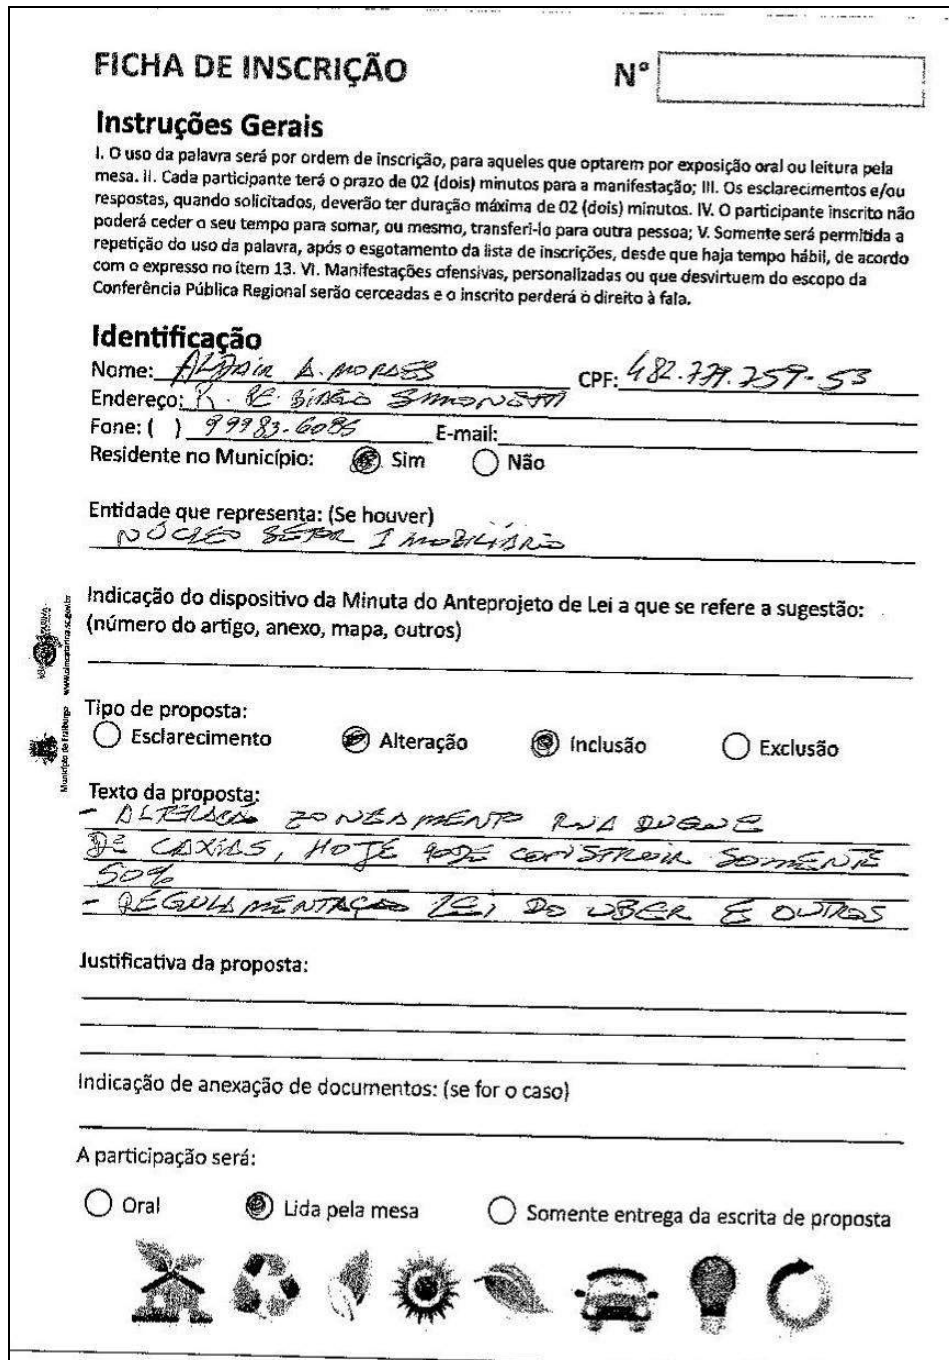 FICHA DE INSCRIÇÃO
Nº
Instruções Gerais
I. O uso da palavra será por ordem de inscrição, para aqueles que optarem por exposição oral ou leitura pela
mesa. II. Cada participante terá o prazo de 02 (dois) minutos para a manifestação; III. Os esclarecimentos e/ou
respostas, quando solicitados, deverão ter duração máxima de 02 (dois) minutos. IV. O participante inscrito não
poderá ceder o seu tempo para somar, ou mesmo, transferi-lo para outra pessoa; V. Somente será permitida a
repetição do uso da palavra, após o esgotamento da lista de inscrições, desde que haja tempo hábil, de acordo
com o expresso no item 13. VI. Manifestações ofensivas, personalizadas ou que desvirtuem do escopo da
Conferência Pública Regional serão cerceadas e o inscrito perderá o direito à fala.
Identificação
Nome: ALTAIR A. MORAES CPF: 482.779.759-53
Endereço: R. PE. BIAGIO SIMONETTI
Fone: ( ) 99983-6085 E-mail:
Residente no Município: Sim Não
Entidade que representa: (Se houver)
NÚCLEO SETOR IMOBILIÁRIO
Indicação do dispositivo da Minuta do Anteprojeto de Lei a que se refere a sugestão:
(número do artigo, anexo, mapa, outros)
Município de Fraiburgo www.simcatarina.sc.gov.br
Tipo de proposta:
Esclarecimento Alteração Inclusão Exclusão
Texto da proposta:
- ALTERAÇÃO ZONEAMENTO RUA DUQUE
DE CAXIAS, HOJE PODE CONSTRUIR SOMENTE
50%
- REGULAMENTAÇÃO LEI DO UBER E OUTROS
Justificativa da proposta:
Indicação de anexação de documentos: (se for o caso)
A participação será:
Oral Lida pela mesa Somente entrega da escrita de proposta